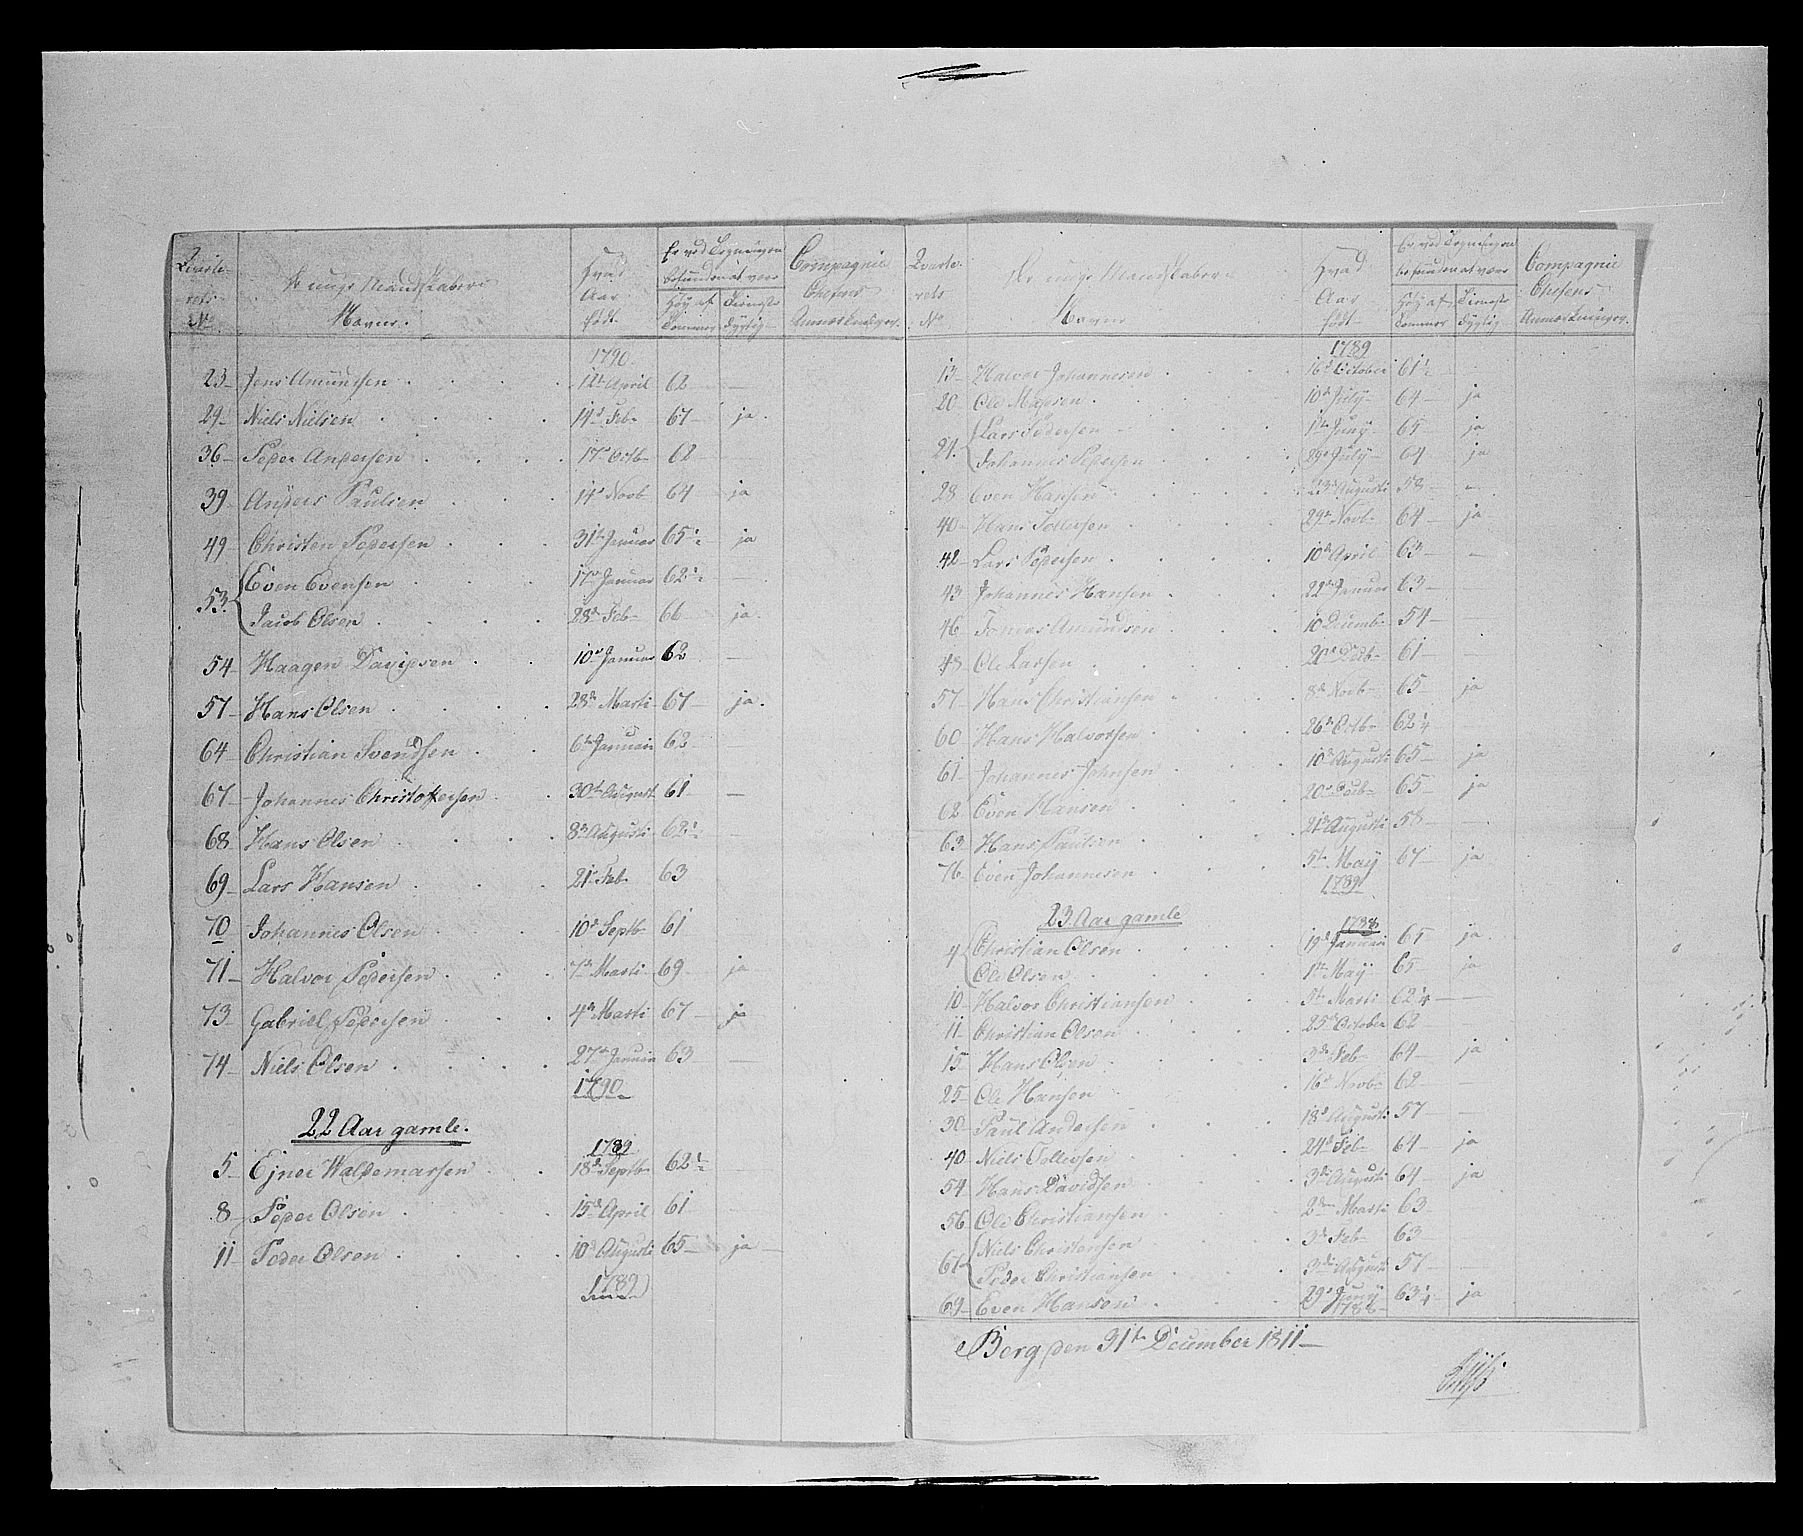 Qvarte- rets No | De unge Mandskabers Navne. | Hvad Aar født | Er ved Tegningen befunden at være Høy af Tommer | Tieneste dygtig | Compagnie Chefens Anmærkninger.
1790
23 Jens Amundsen 12te April 62 —
29 Niels Nielsen 14d Feb 67 ja.
36 Peder Andersen 17d Octb 62 —
39 Anders Paulsen 14d Novb 64 ja
49 Christen Pedersen 31te Januar 65½ ja
53 Even Evensen 17d Januar 62½ —
Jacob Olsen 28d Feb 66 ja.
54 Haagen Davidsen 10d Januar 62 —
57 Hans Olsen 28d Marti 67 ja.
64 Christian Svendsen 6te Januari 62 —
67 Johannes Christoffersen 30te August 61 —
68 Hans Olsen 8d Augusti 62½ —
69 Lars Hansen 21d Feb 63
70 Johannes Olsen 10d Septb 61
71 Halvor Pedersen 7d Marti 69 ja
73 Gabriel Pedersen 4d Marti 67 ja
74 Niels Olsen 27d Januari 63 —
1790
22 Aar gamle.
1789
5 Ejner Waldemarsen 18d Septb 62½
8 Peder Olsen 15d April 61 —
11 Peder Olsen 10d Augusti 65 ja
1789
Qvarte- rets No | De unge Mandskabers Navne | Hvad Aar født | Er ved Tegningen befunden at være Høy af Tommer | Tieneste dygtig | Compagnie Chefens Anmærkninger.
1789
13 Halvor Johannesen 16d October 61½ —
20 Ole Madsen 10d July 64 ja
21 Lars Pedersen 1te Juny 65 ja
Johannes Pedersen 29d July 64 ja
28 Even Hansen 23d Augusti 58 —
40 Hans Tollefsen 29d Novb 64 ja
42 Lars Pedersen 10d April 63 —
43 Johannes Hansen 22d Januar 63 —
46 Amundsen 10 Decemb 54 —
48 Ole Larsen 61 —
57 Hans Christiansen 8d Novb 65 ja
60 Hans Halvorsen 26d Octb 62¼
61 Johannes Johnsen 10d Augusti 65 ja
62 Even Hansen 65 ja
63 Hans Paulsen 21d Augusti 58 —
76 Even Johannesen 5te May 67 ja
1789
23 Aar gamle
1788
4 Christian Olsen 19d Januari 65 ja
Ole Olsen 1te May 65 ja
10 Halvor Christiansen 5te Marti 62¼ —
11 Christian Olsen 25d October 62 —
15 Hans Olsen 3d Feb 64 ja
25 Ole Hansen 16d Novb 62 —
30 Paul Andersen 18d Augusti 57 —
40 Niels Tollefsen 24d Feb 64 ja
54 Hans Davidsen 3d Augusti 64 ja
56 Ole Christiansen 2den Marti 63
61 Niels Christensen 3d Feb 63 —
Peder Christiansen 3d Augusti 57 —
69 Even Hansen 29d Juny 63¼ ja
1788
Berg den 31te December 1811